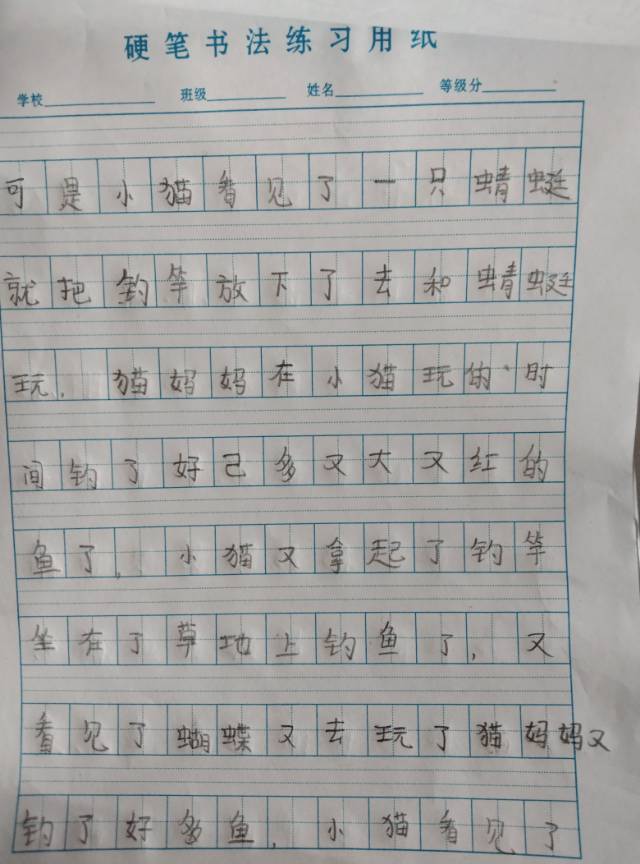 硬笔书法练习用纸
学校 班级 姓名 等级分
可是小猫看见了一只蜻蜓
就把钓竿放下了去和蜻蜓
玩，猫妈妈在小猫玩的时
间钓了好己多又大又红的
鱼了，小猫又拿起了钓竿
坐有了草地上钓鱼了，又
看见了蝴蝶又去玩了猫妈妈又
钓了好多鱼，小猫看见了